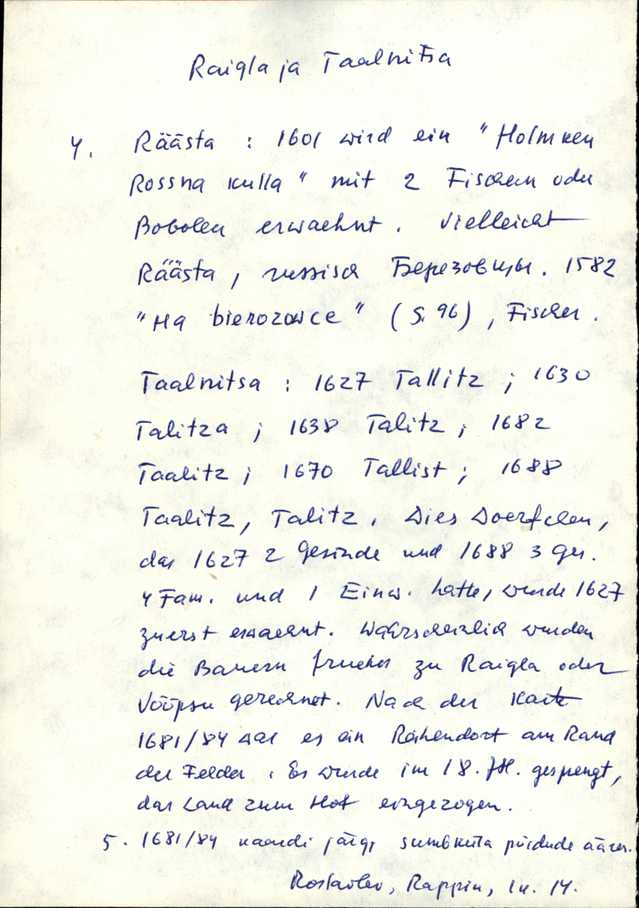 Raigla ja Taalnitsa
4. Räästa : 1601 wird ein "Holmken
Rossna kulla" mit 2 Fischern oder
Bobolen erwaehnt. Vielleicht
Räästa, russisch Березовицы. 1582
"на bierozowce" (S. 96), Fischer.
Taalnitsa : 1627 Tallitz ; 1630
Talitza ; 1638 Talitz ; 1682
Taalitz ; 1670 Tallist ; 1688
Taalitz, Talitz. Dies Doerfchen,
das 1627 2 Gesinde und 1688 3 Ges.
4 Fam. und 1 Einw. hatte, wurde 1627
zuerst erwaehnt. Wahrscheinlich wurden
die Bauern frueher zu Raigla oder
Võõpsu gerechnet. Nach der Karte
1681/84 war es ein Reihendorf am Rand
der Felder. Es wurde im 18. JH. gesprengt,
das Land zum Hof eingezogen.
5. 1681/84 kaardi järgi sumbküla põldude ääres.
Roslavlev, Rappin, lk. 14.